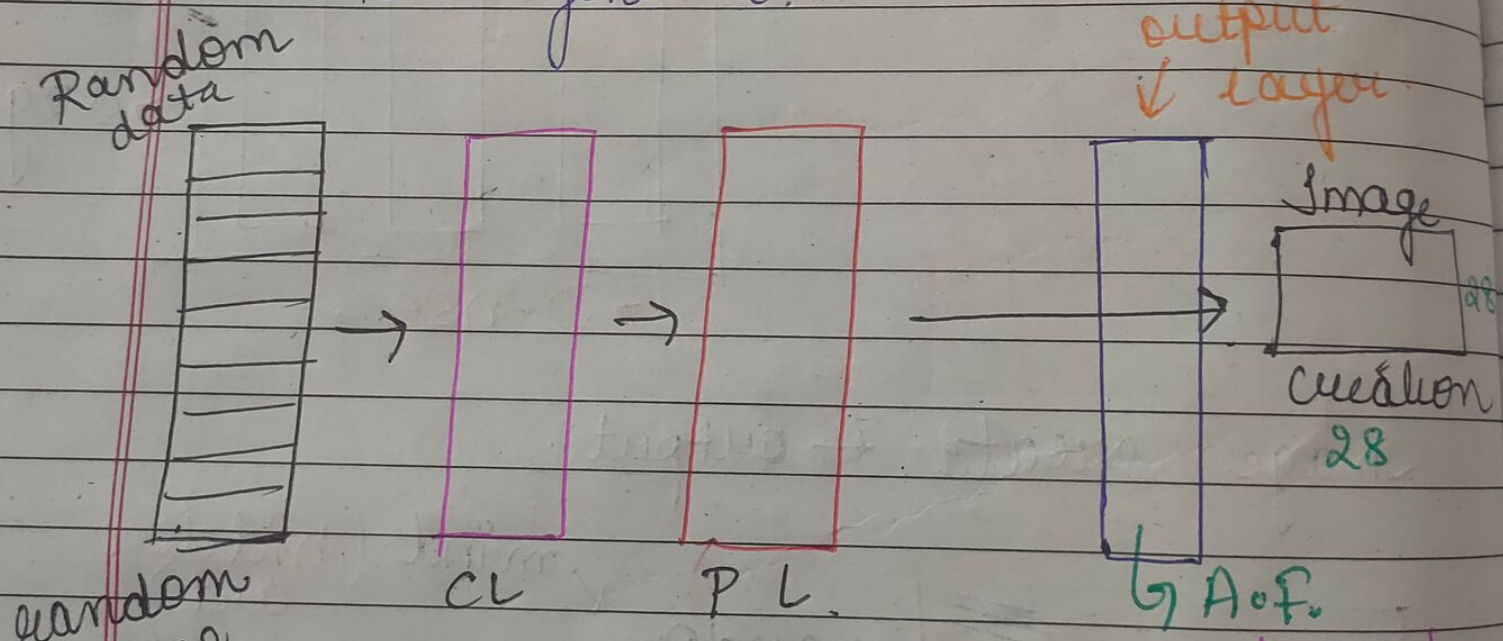 Random
data
output
layer
Image
28
creation
28
random
CL
P L.
A.F.